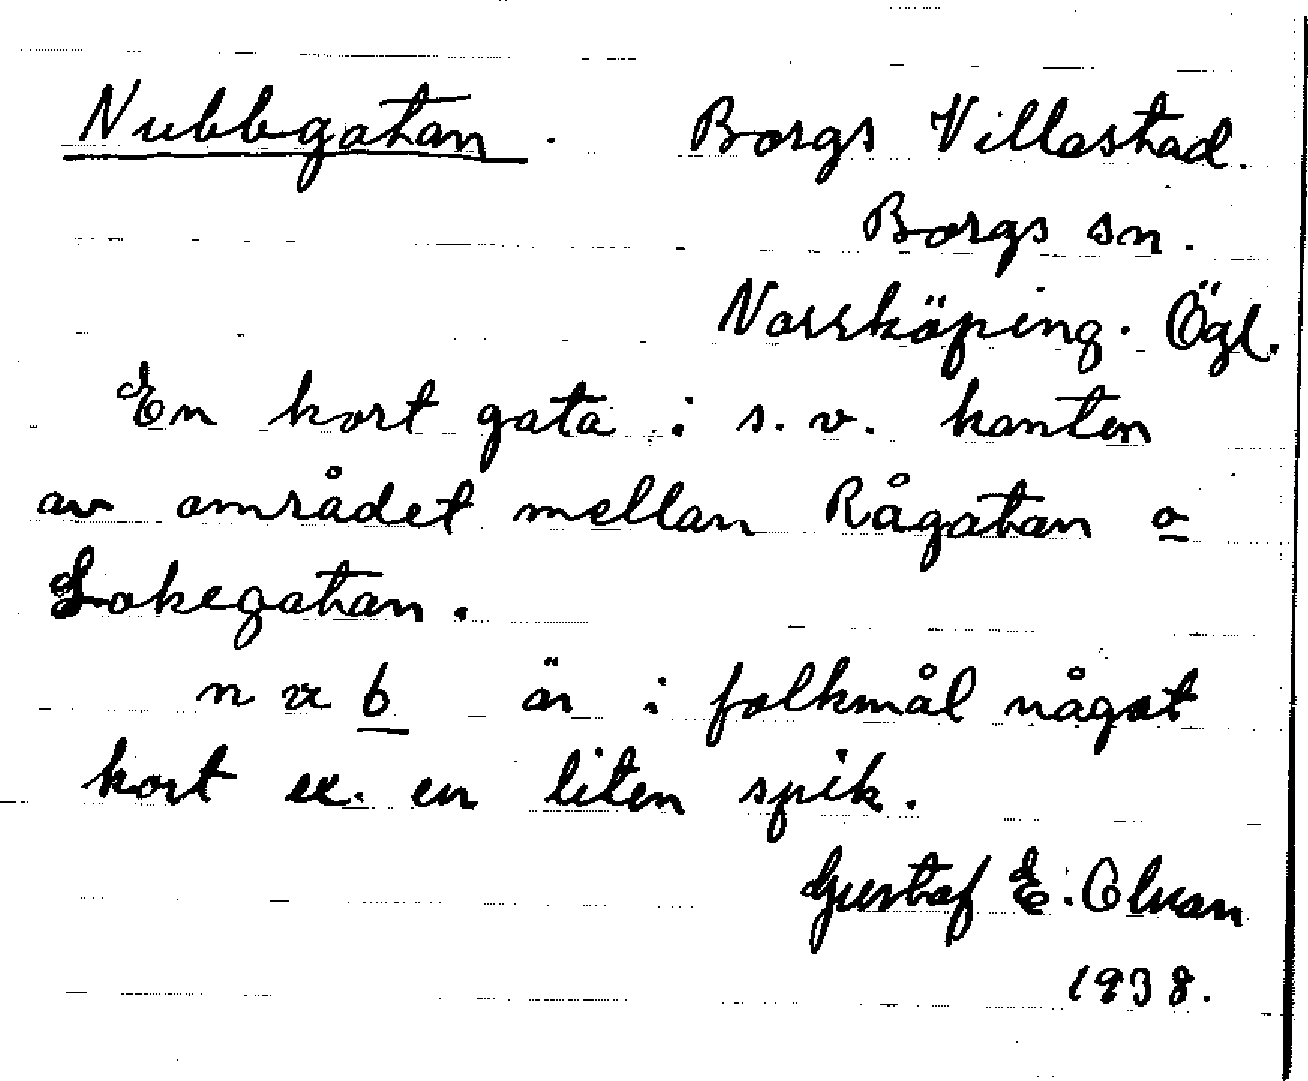 Nubbgatan. Borgs Villastad.
Borgs sn.
Norrköping. Ögl.
En kort gata i s.v. kanten
av området mellan Rågatan o
Lokegatan.
n u b är i folkmål något
kort ex. en liten spik.
Gustaf E. Olson
1938.